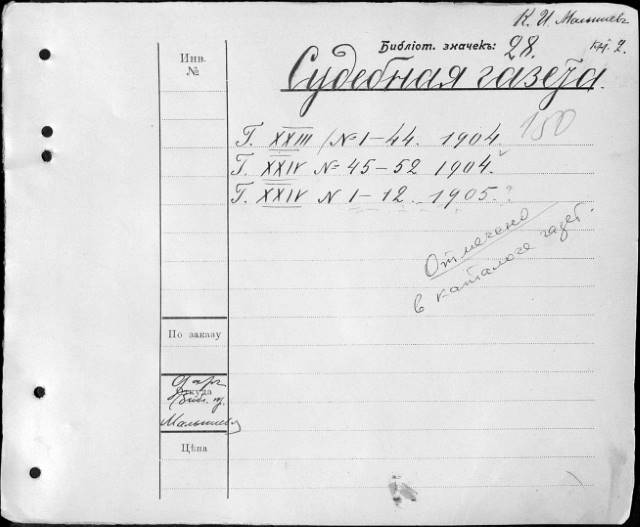 К. И. Малышев
Библіот. значекъ: 28. кн. 2.
Судебная газета.
Инв.
№
150
Г. XXIII № 1-44. 1904.
Г. XXIV № 45-52 1904.
Г. XXIV № 1-12. 1905.?
Отмечено
в каталоге газет.
По заказу
Откуда
Дар
Малышева
Цѣна